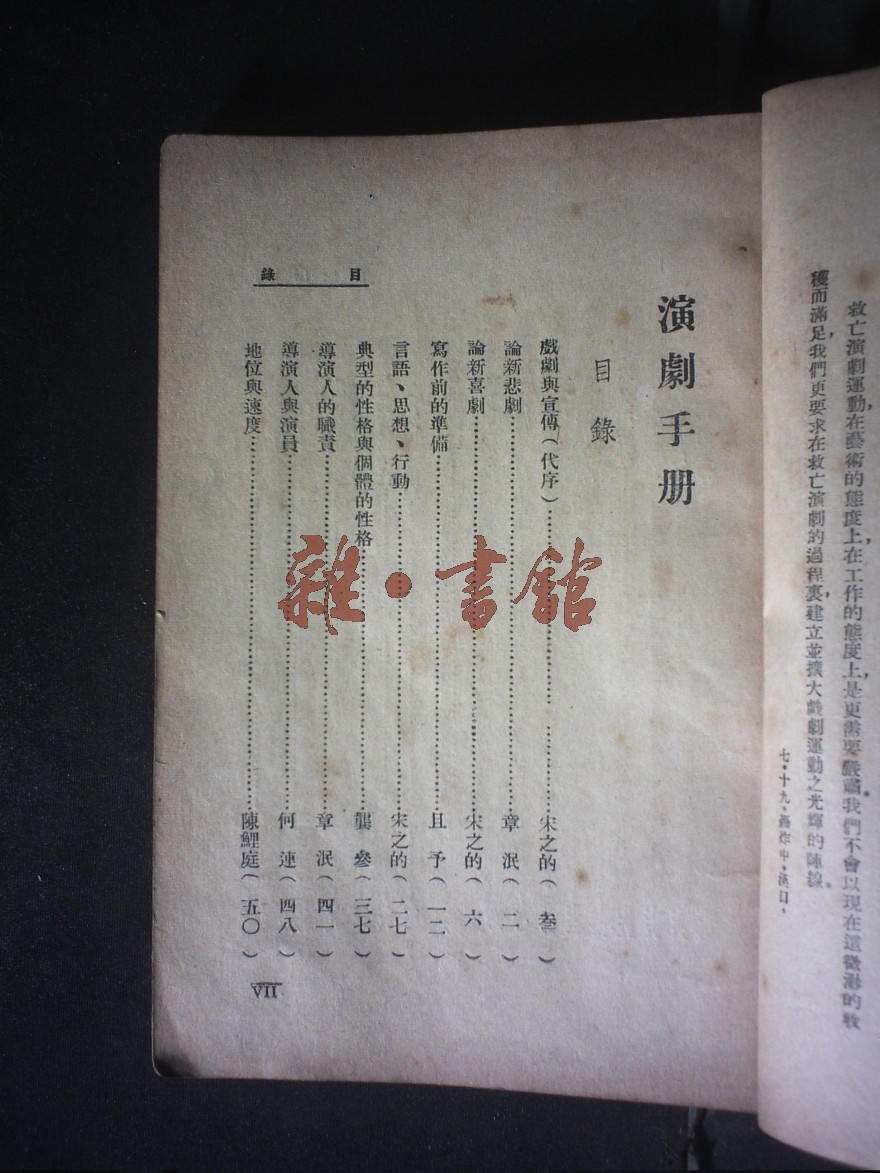 救亡演劇運動在藝術的態度上,在工作的態度上,是更需要嚴肅。我們不會以現在這微渺的收
穫而滿足,我們更要求在救亡演劇的過程裏,建立並擴大戲劇運動之光輝的陣線。
七·十九,轟炸中·漢口。
演劇手册
目錄
戲劇與宣傳(代序)……宋之的(叁)
論新悲劇……章泯(二)
論新喜劇……宋之的(六)
寫作前的準備……且予(一二)
言語、思想、行動……宋之的(二七)
典型的性格與個體的性格……龔參(三七)
導演人的職責……章泯(四一)
導演人與演員……何連(四八)
地位與速度……陳鯉庭(五〇)
目錄
VII
雜·書館